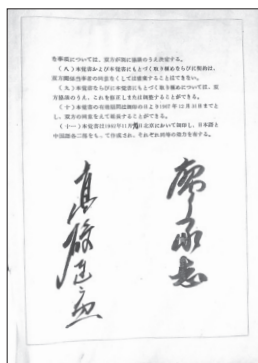 を事項については、双方が別に協議のうえ決定する。
(八)本覚書および本覚書にもとづく取り極めならびに契約は、
双方関係当事者の同意をなくしては廃棄することはできない。
(九)本覚書ならびに本覚書にもとづく取り極めについては、双
方協議のうえ、これを修正しまたは調整することができる。
(十)本覚書の有効期間は調印の日より1967年12月31日までと
し、双方の同意をえて延長することができる。
(十一)本覚書は1962年11月9日北京において調印し、日本語と
中国語各二通をもって作成され、それぞれ同等の効力を有する。
高碕達之助
廖承志